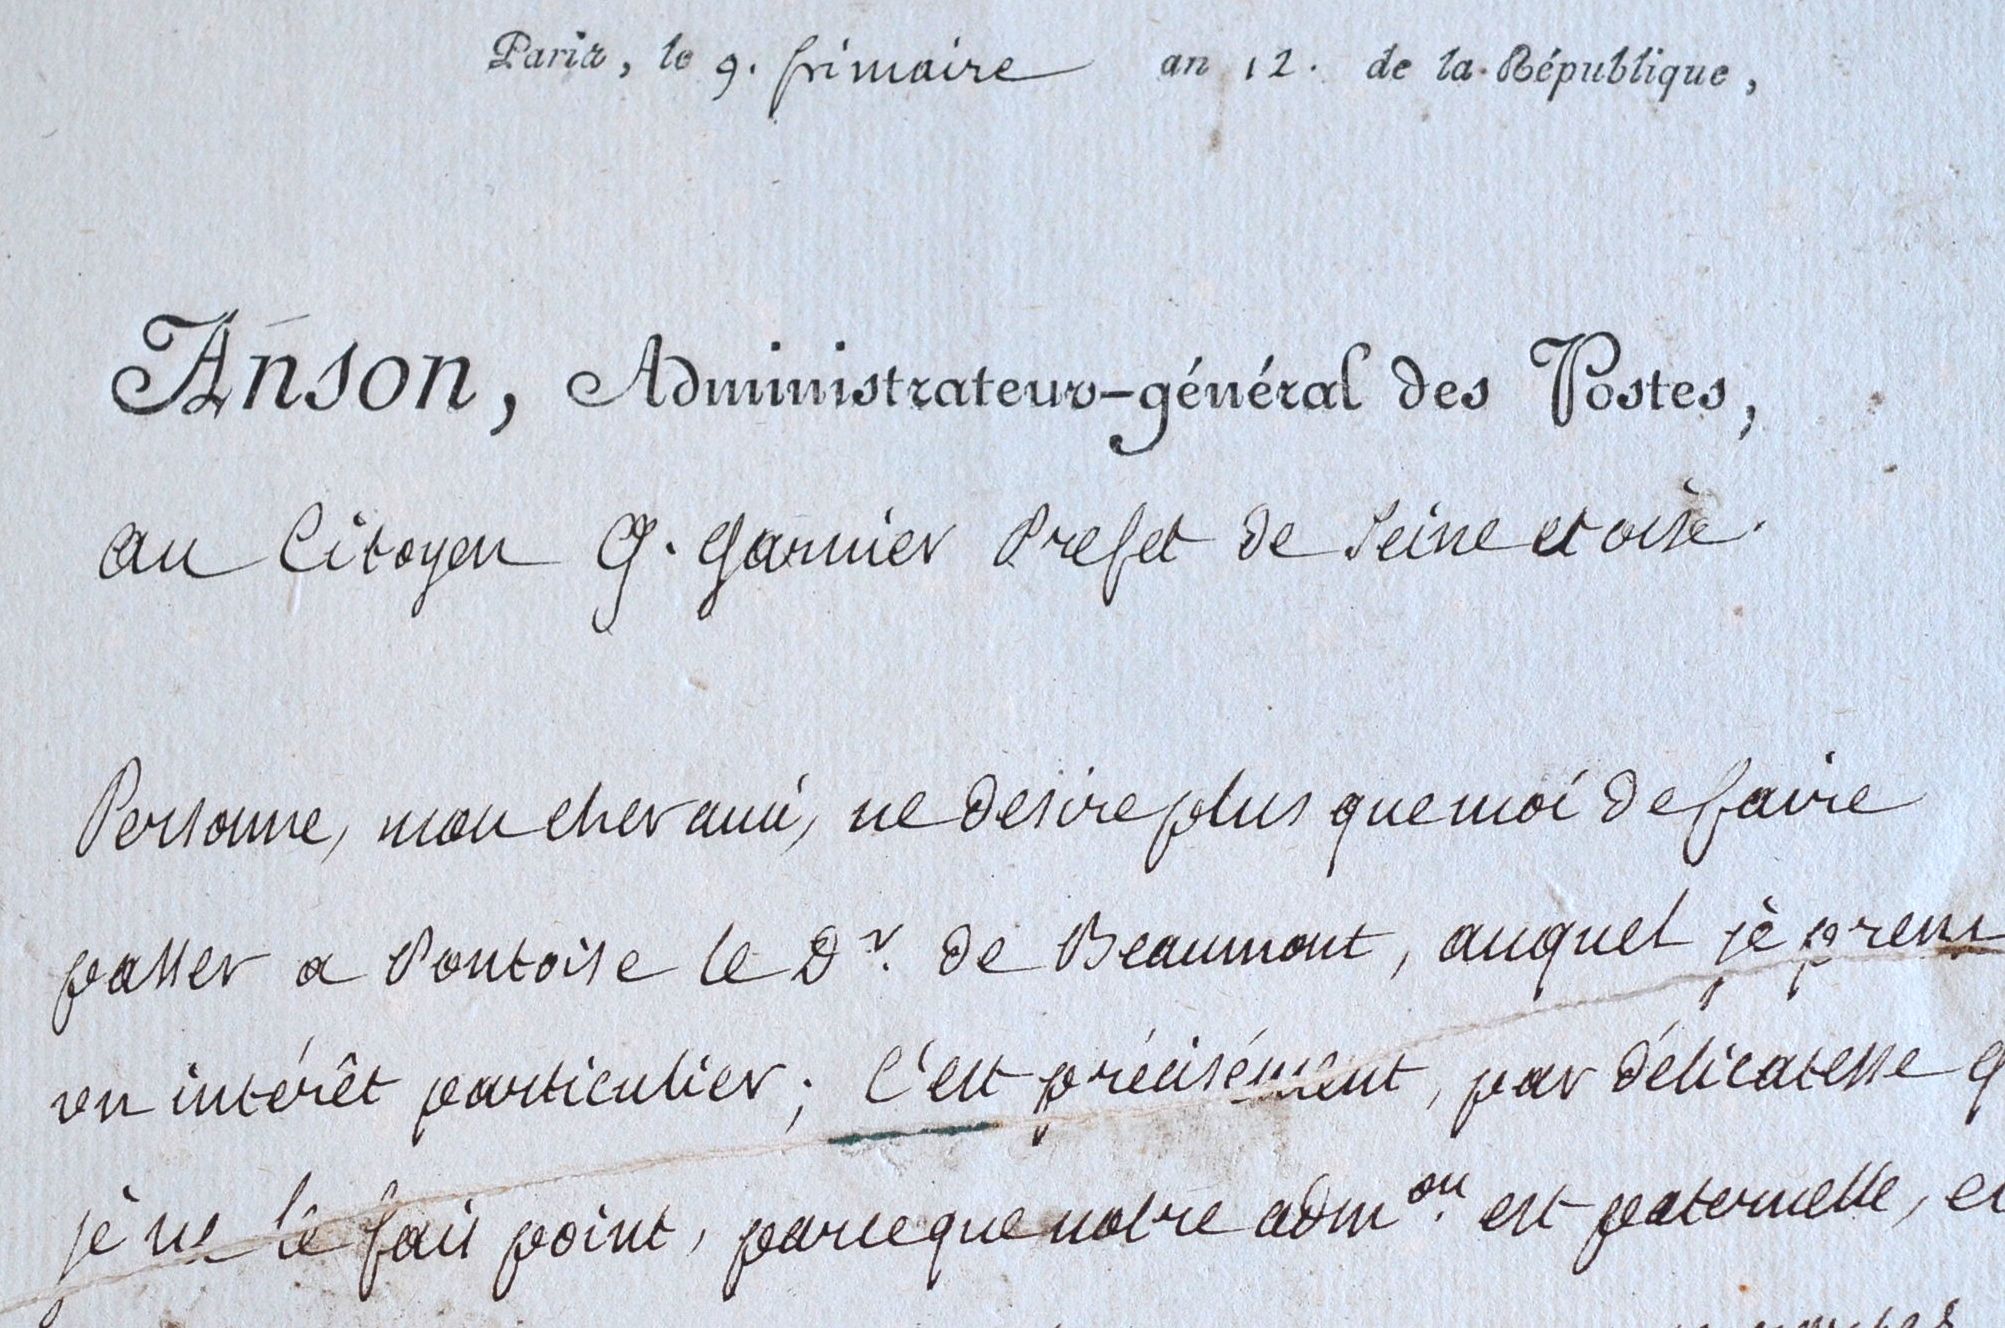 Paris, le 9. frimaire an 12. de la République,
Anson, Administrateur-général des Postes,
au Citoyen G. Garnier Prefet de Seine et oise.
Personne, mon cher ami, ne desire plus que moi de faire
passer a Pontoise le Dr. de Beaumont, auquel je prens
un intérêt particulier; C'est précisément, par délicatesse q
je ne le fais point, parceque notre admon. est paternelle, et